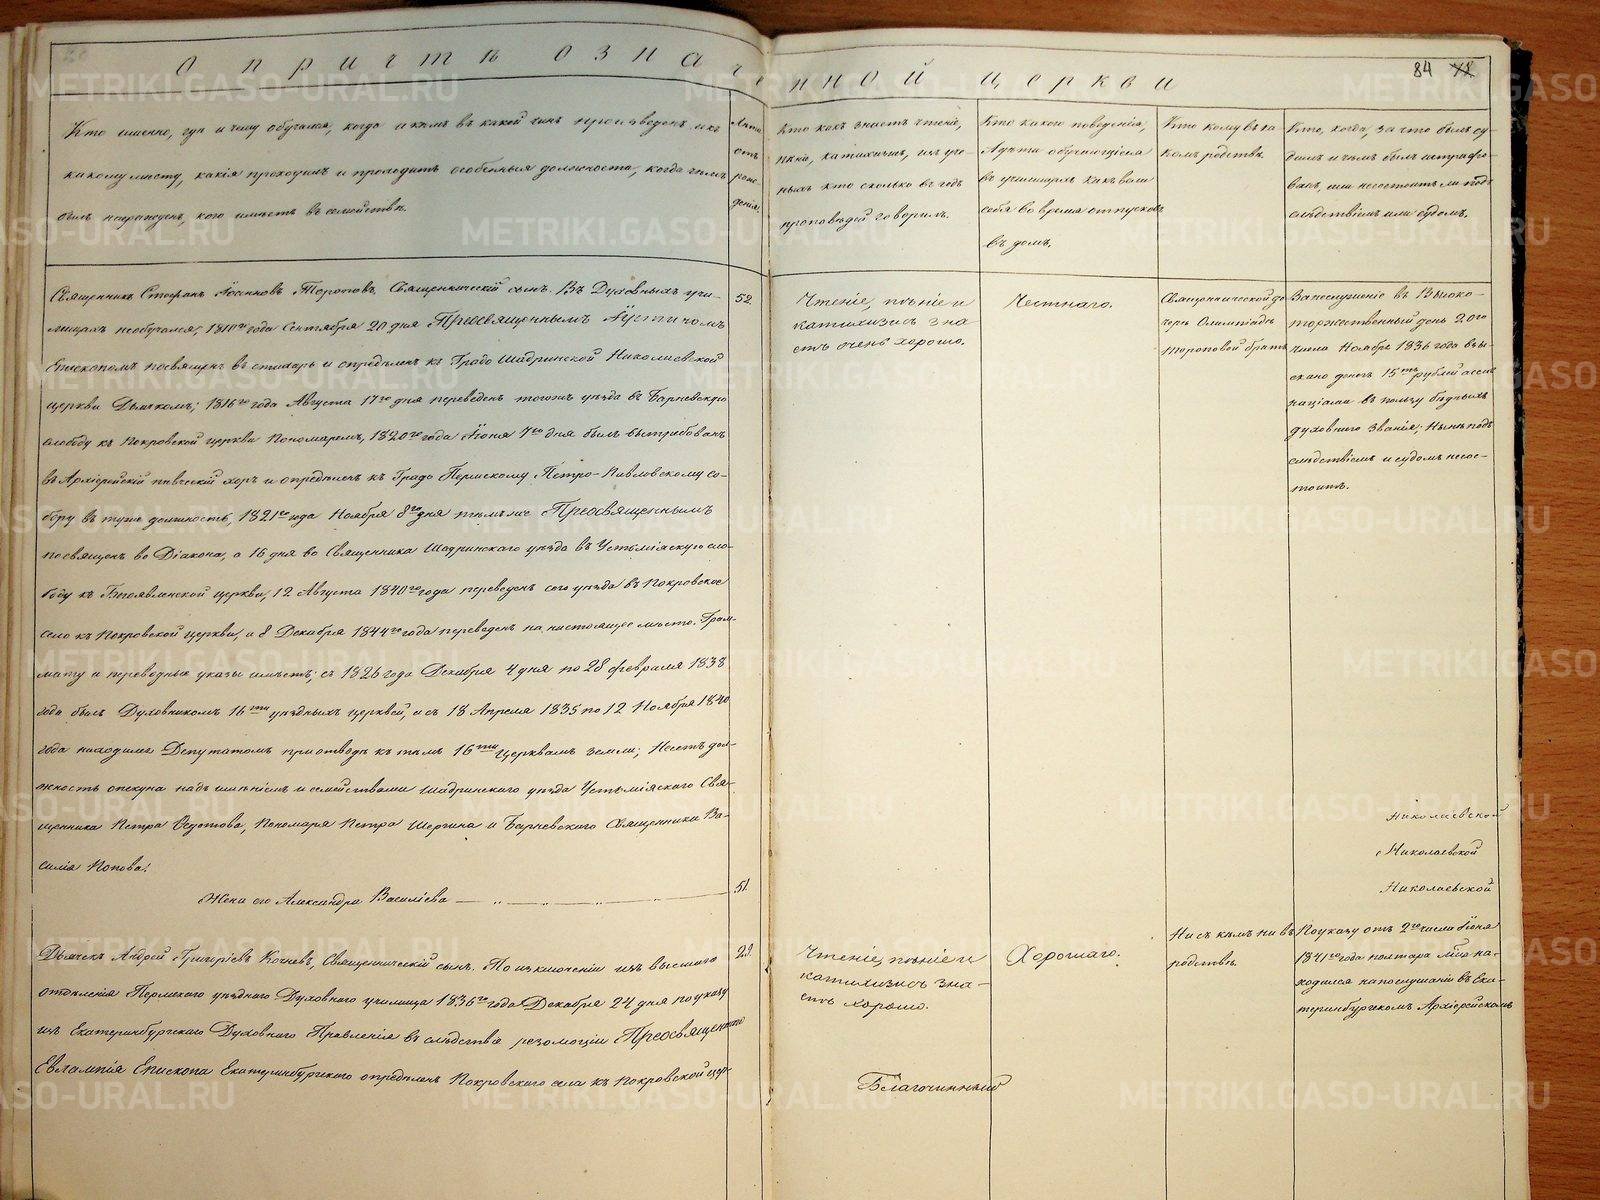 О причтѣ означенной церкви
84
Кто именно, гдѣ и чему обучался, когда и кѣмъ въ какой чинъ произведенъ и къ
какому мѣсту, какія проходилъ и проходитъ особенныя должности, когда чѣмъ
былъ награжденъ, кого имѣетъ въ семействѣ.
Лѣта
отъ
рож-
денія.
Кто какъ знаетъ чтеніе,
пѣніе, катихизисъ, изъ уче-
ныхъ кто сколько въ годъ
проповѣдей говорилъ.
Кто какого поведенія,
Дѣти обучающіеся
въ училищахъ какъ вели
себя во время отпусковъ
въ домъ.
Кто кому въ ка-
комъ родствѣ.
Кто, когда, за что былъ су-
димъ и чѣмъ былъ штрафо-
ванъ, или несостоитъ ли подъ
слѣдствіемъ или судомъ.
Священникъ Стефанъ Топорковъ, Священническій сынъ. Въ Духовныхъ учи-
лищахъ необучался, 1810го года Сентября 20 дня Преосвященнымъ Іустиномъ
Епископомъ посвященъ въ стихарь и опредѣленъ къ Градо Шадринской Николаевской
церкви Дьячкомъ; 1816го года Августа 17го дня переведенъ тогожъ уѣзда въ Барневскую
слободу къ Покровской церкви Пономаремъ, 1820го года Іюня 7го дня былъ вытребованъ
въ Архіерейскій пѣвческій хоръ и опредѣленъ къ Градо Пермскому Петро-Павловскому со-
бору въ туже должность, 1821го года Ноября 8го дня тѣмъже Преосвященнымъ
посвященъ во Діакона, а 16 дня во Священника Шадринскаго уѣзда въ Устьміясскую сло-
боду къ Богоявленской церкви, 12 Августа 1840го года переведенъ сего уѣзда въ Покровское
село къ Покровской церкви, и 8 Декабря 1844го года переведенъ на настоящее мѣсто. Гром-
мату и переводные указы имѣетъ; съ 1826 года Декабря 4 дня по 28 февраля 1838
года былъ Духовникомъ 16ти уѣздныхъ церквей, и съ 18 Апреля 1835 по 12 Ноября 1840
года находился Депутатомъ при отводѣ къ тѣмъ 16ти церквамъ земли; Несетъ дол-
жность опекуна надъ имѣніемъ и семействами Шадринскаго уѣзда Устьміясскаго Свя-
щенника Петра Федотова, Пономаря Петра Шергина и Барневскаго Священника Ва-
силія Попова.
52.
Чтеніе, пѣніе и
катихизисъ зна
етъ очень хорошо.
Честнаго.
Священнической до
черѣ Олимпіадѣ
Топорковой братъ
За неслуженіе въ Высоко-
торжественный день 20го
числа Ноября 1836 года взы-
скано денегъ 15ть рублей ассиг
націями въ пользу бѣдныхъ
духовнаго званія; Нынѣ подъ
слѣдствіемъ и судомъ несос-
тоитъ.
Николаевской
Николаевской
Николаевской
Жена его Александра Василіева
51.
Дьячекъ Андрей Григоріевъ Кочневъ, Священническій сынъ. По исключеніи изъ высшаго
отдѣленія Пермскаго уѣзднаго Духовнаго училища 1836го года Декабря 24 дня по указу
изъ Екатеринбургскаго Духовнаго Правленія въ слѣдствіе резолюціи Преосвященнаго
Евлампія Епископа Екатеринбургскаго опредѣленъ Покровскаго села къ Покровской цер-
Чтеніе, пѣніе и
катихизисъ зна-
етъ хорошо.
Хорошаго.
Ни съ кѣмъ ни въ
родствѣ.
По указу отъ 2го числа Іюня
1841го года полтора мѣся на-
ходился на послушаніи въ Ека-
теринбургскомъ Архіерейскомъ
Благочинный
METRIKI.GASO-URAL.RU